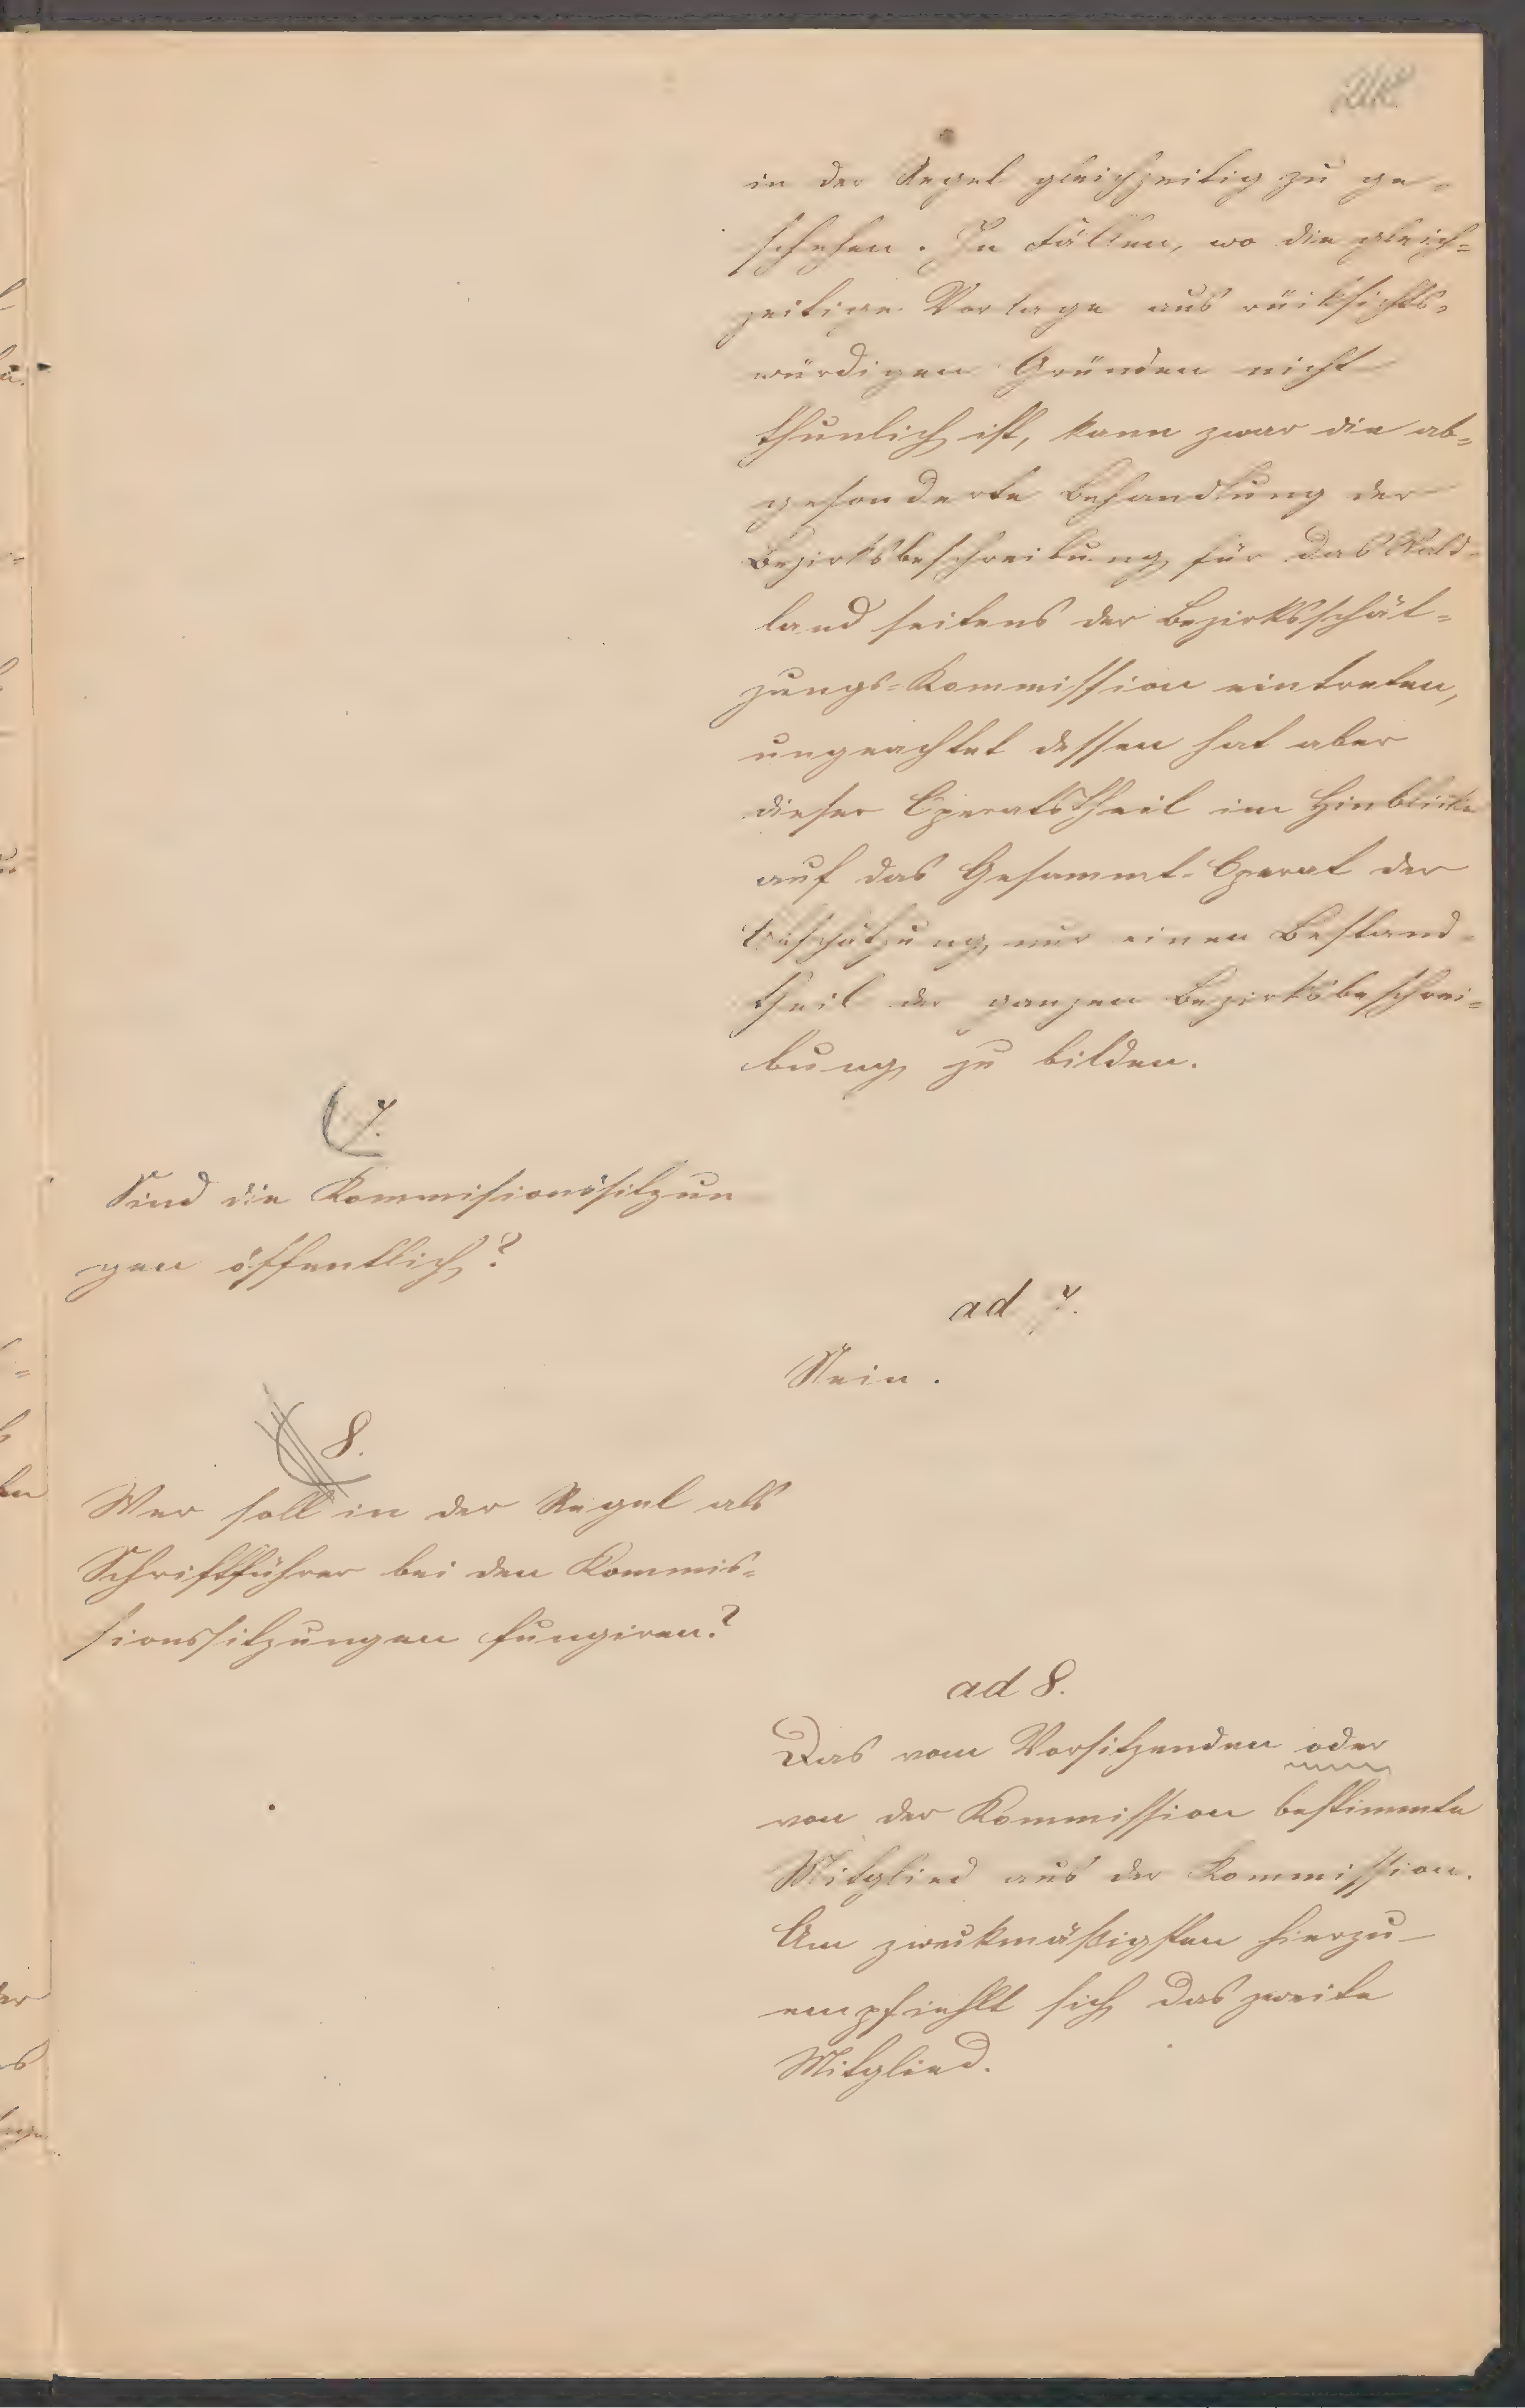 in der Regel gleichzeitig zu ge-
schehen. In Fällen, wo die gleich=
zeitige Vorlage aus rücksichts-
würdigen Gründen nicht
thunlich ist, kann zwar die ab-
gesonderte Behandlung der
Bezirksbeschreibung für das Wald-
land seitens der Bezirksschät=
zungs=Kommission eintreten,
ungeachtet dessen hat aber
dieser Operatstheil im Hinblicke
auf das Gesammt-Operat der
Einschätzung, nur einen Bestand-
theil der ganzen Bezirksbeschrei=
bung zu bilden.
7.
Sind die Kommisionssitzun
gen öffentlich?
ad 7.
Nein.
8.
Wer soll in der Regel als
Schriftführer bei den Kommis=
sionssitzungen fungiren?
ad 8.
Das vom Vorsitzenden oder
von der Kommission bestimmte
Mitglied aus der Kommission.
Am zweckmäßigsten hierzu
empfiehlt sich das zweite
Mitglied.